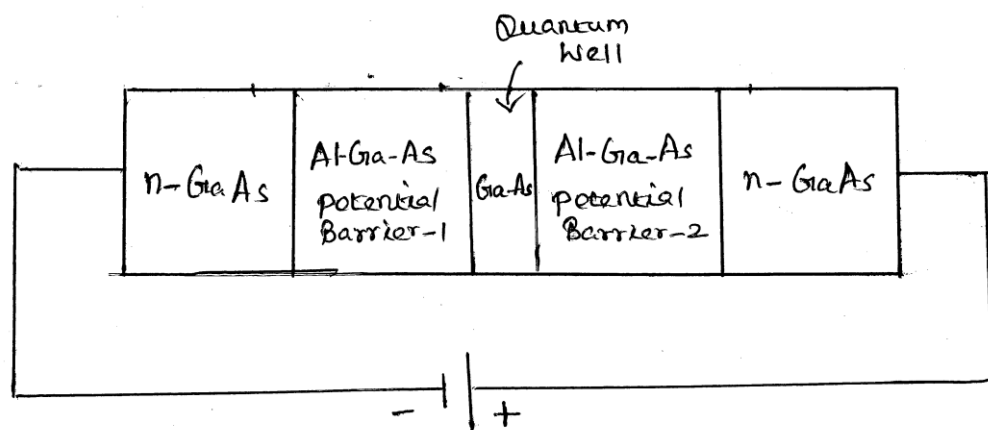 Quantum
Well
n-GaAs
Al-Ga-As
potential
Barrier-1
Ga-As
Al-Ga-As
potential
Barrier-2
n-GaAs
- +